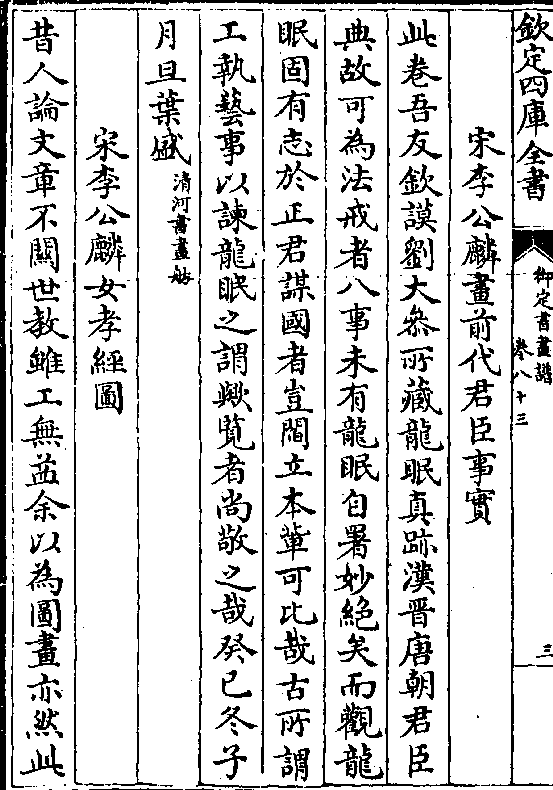 欽定四庫全書
御定書畫譜
卷八十三
三
宋李公麟畫前代君臣事實
此卷吾友欽謨劉大叅所藏龍眠真跡漢晉唐朝君臣
典故可為法戒者八事未有龍眠自署妙絕矣而觀龍
眠固有志於正君謀國者豈閻立本輩可比哉古所謂
工執藝事以諫龍眠之謂歟覽者尚敬之哉癸巳冬子
月旦葉盛清河書畫舫
宋李公麟女孝經圖
昔人論文章不關世教雖工無益余以為圖畫亦然此